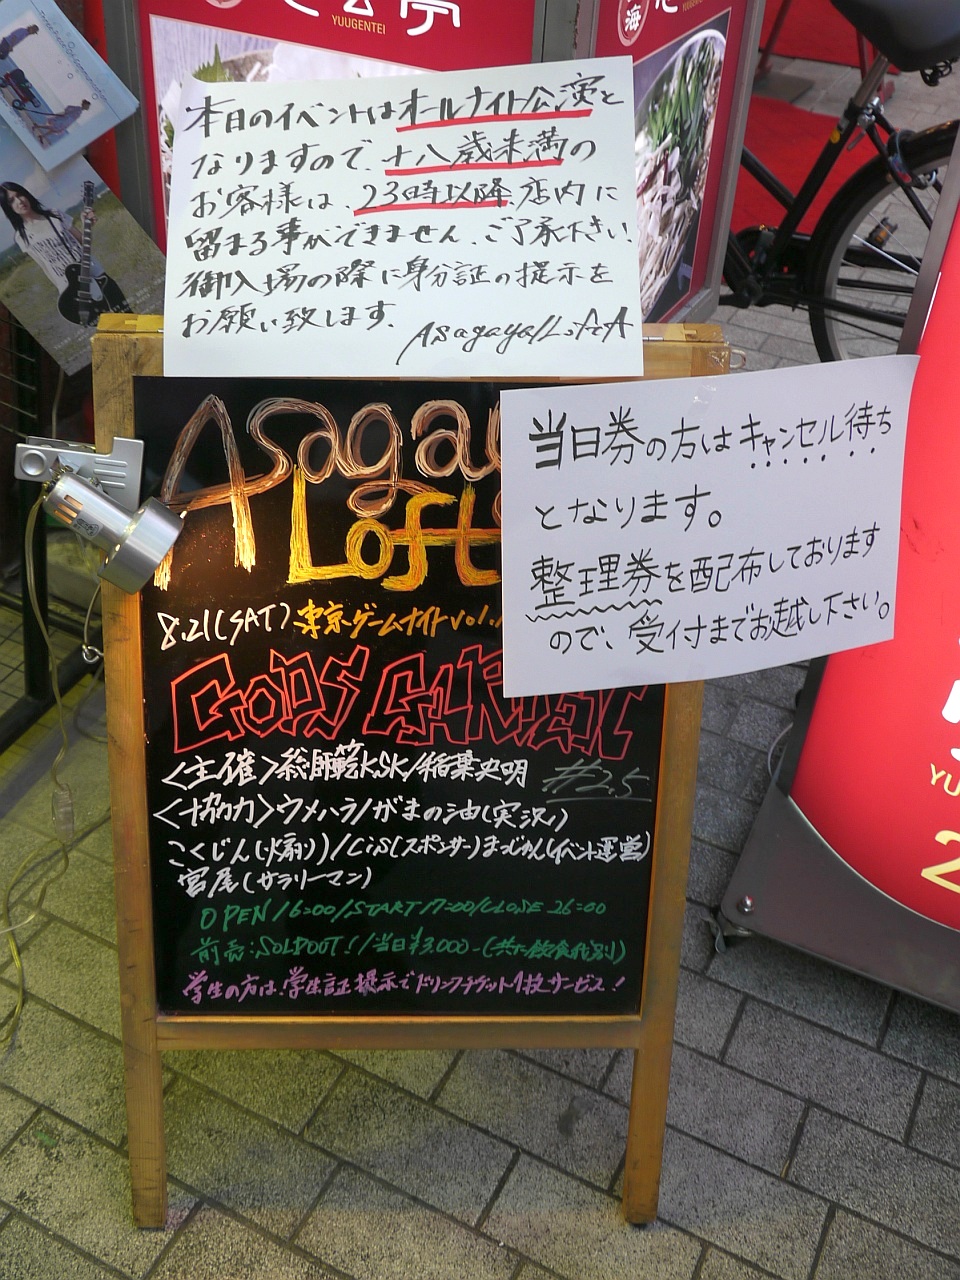 YUUGENTEI
本日のイベントはオールナイト公演と
なりますので、十八歳未満の
お客様は、23時以降店内に
留まる事ができません。ご了承下さい!
御入場の際に身分証の提示を
お願い致します。
Asagaya/LoftA
当日券の方はキャンセル待ち
となります。
整理券を配布しております
ので、受付までお越し下さい。
Asaga
Loft
8.21(SAT)東京ゲームナイトvol.
GODS GARDEN
#2.5
<主催>総師範KSK/稲葉央明
<協力>ウメハラ/がまの油(実況)
こくじん(火扇り)/Cis(スポンサー)まっじゅん(イベント運営)
宮尾(サラリーマン)
OPEN/16:00/START17:00/CLOSE 26:00
前売:SOLDOUT!/当日¥3,000-(共に飲食代別)
学生の方は、学生証提示でドリンクチケット1枚サービス!